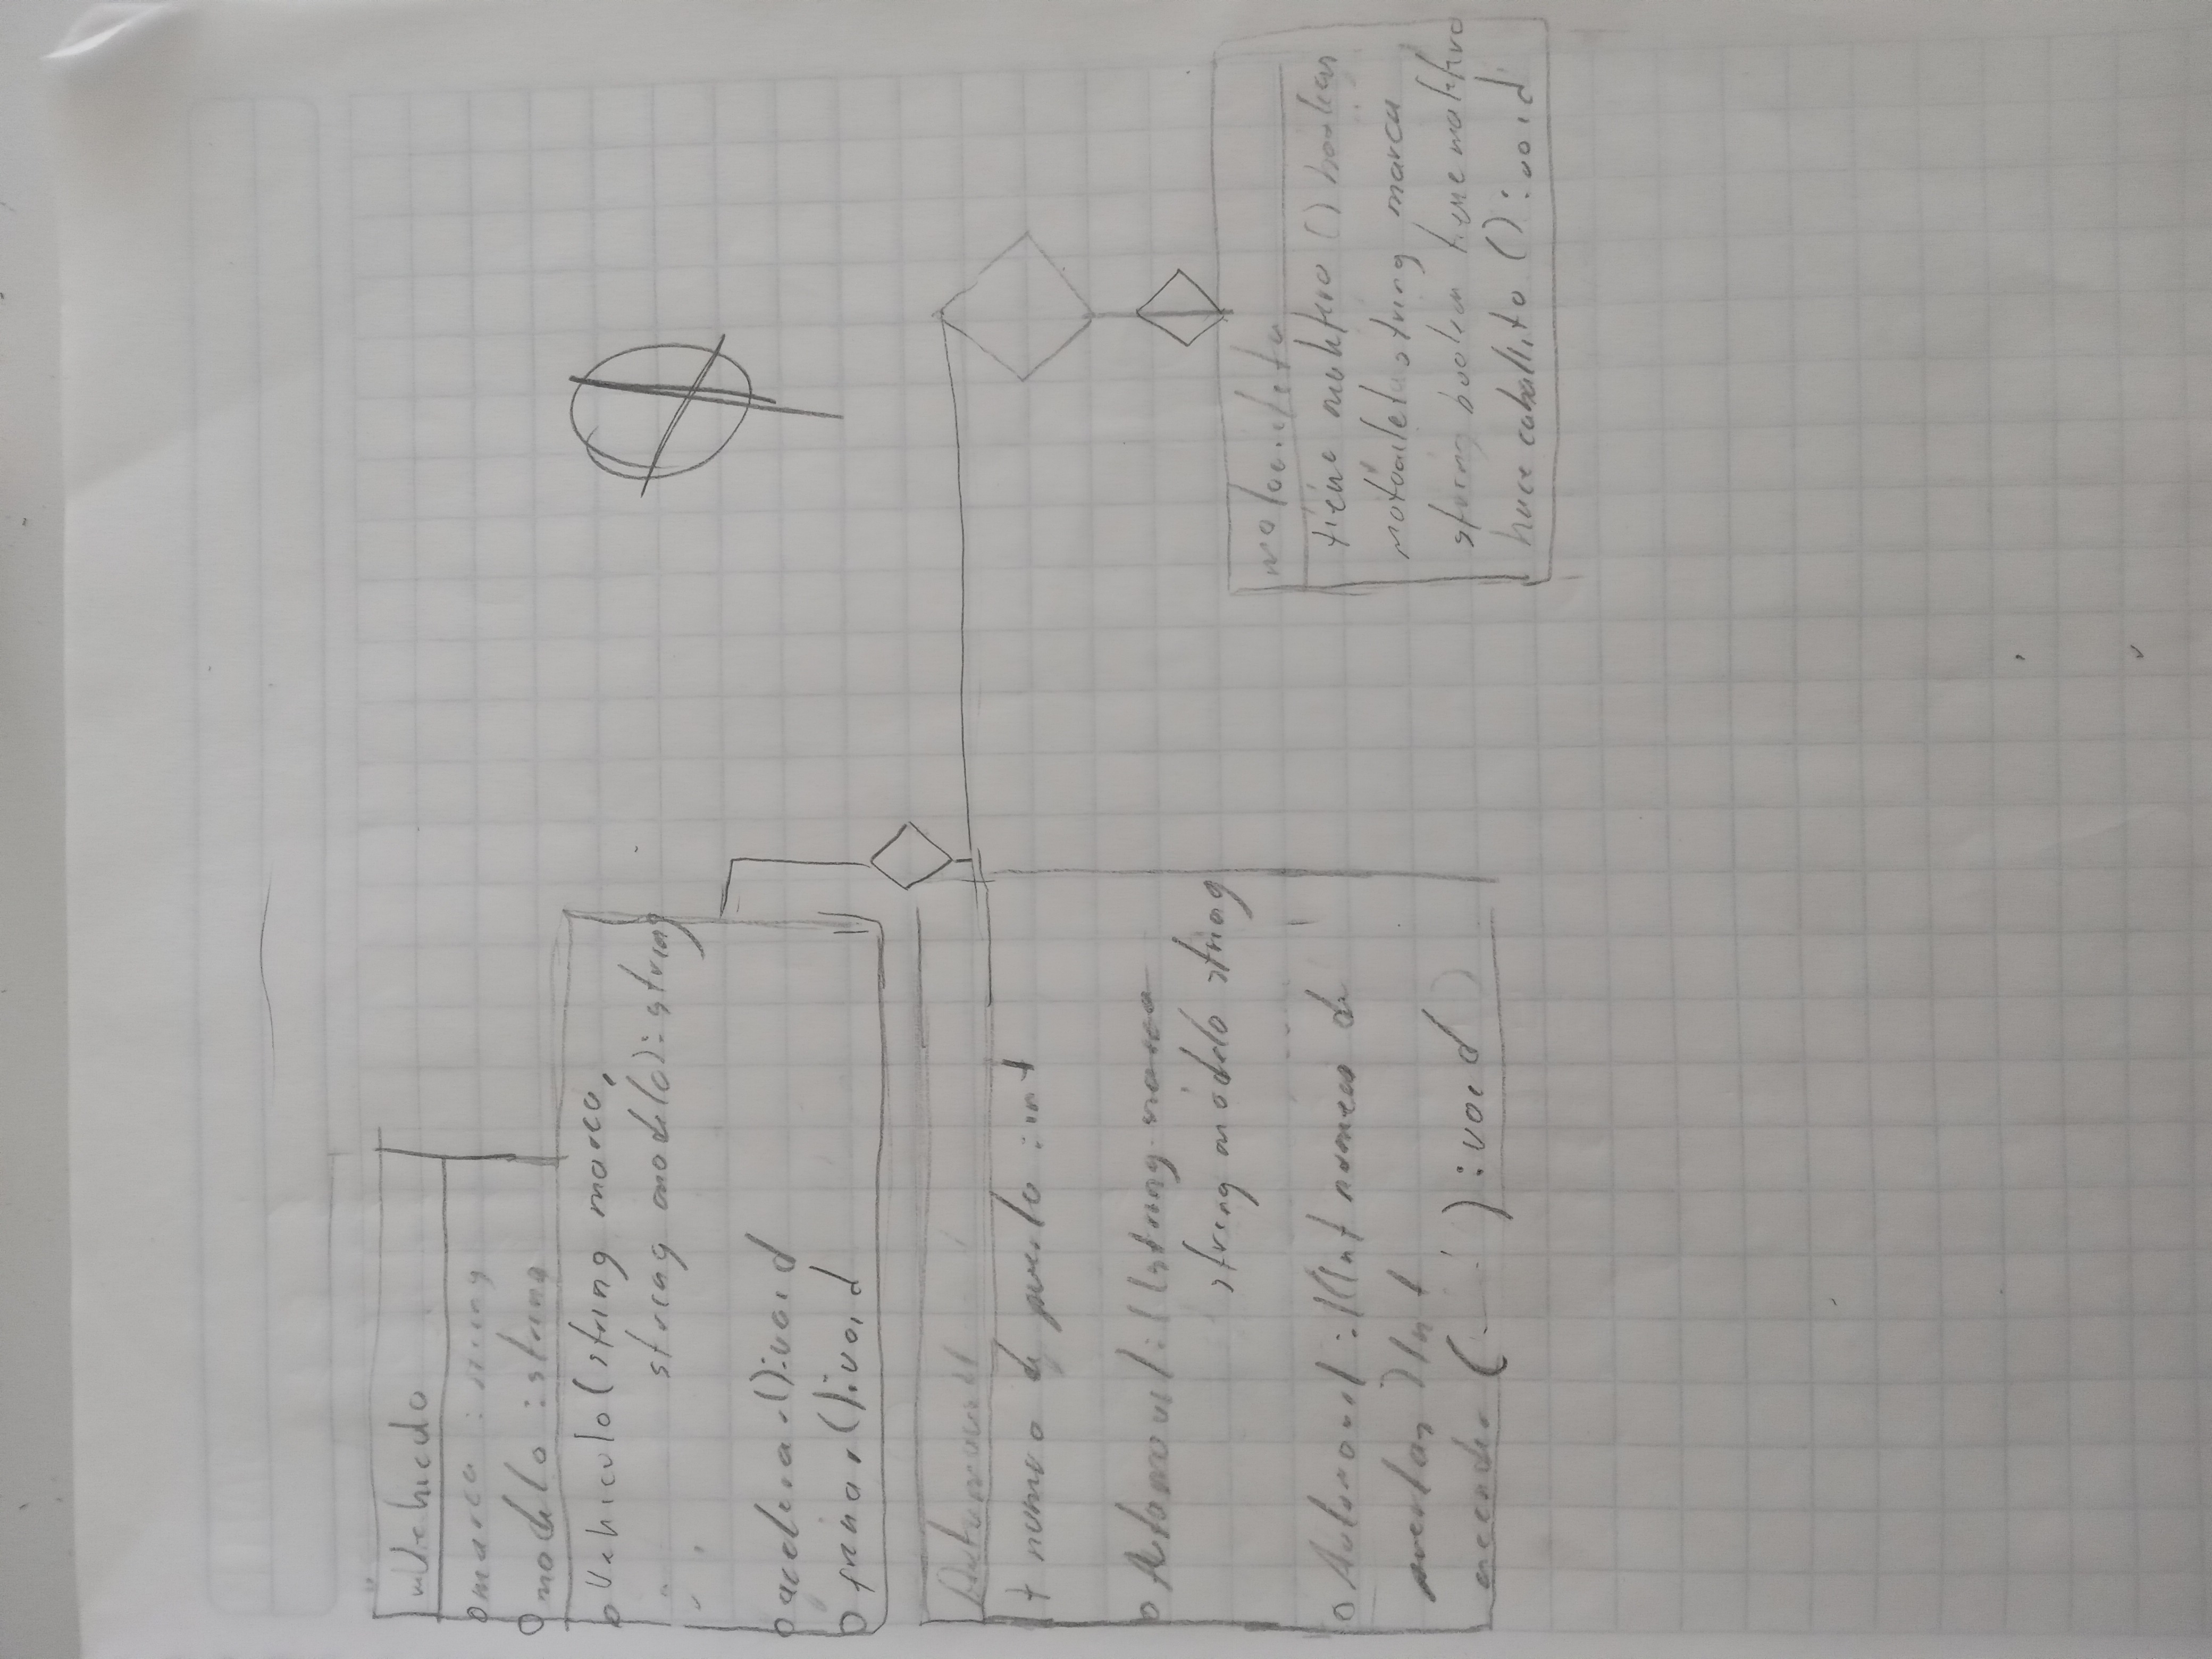 Vehiculo
marca : string
modelo : string
Vehiculo(string marca,
string modelo): string
acelerar():void
frenar():void
Automovil
+ numero de puerta : int
Automovil:((string marca
string modelo string
Automovil:((Int numero de
puertas)Int
encender ( ):void
motocicleta
tiene maletero () boolean
motocicleta string marca
string boolean tiene maletero
hace caballito () : void